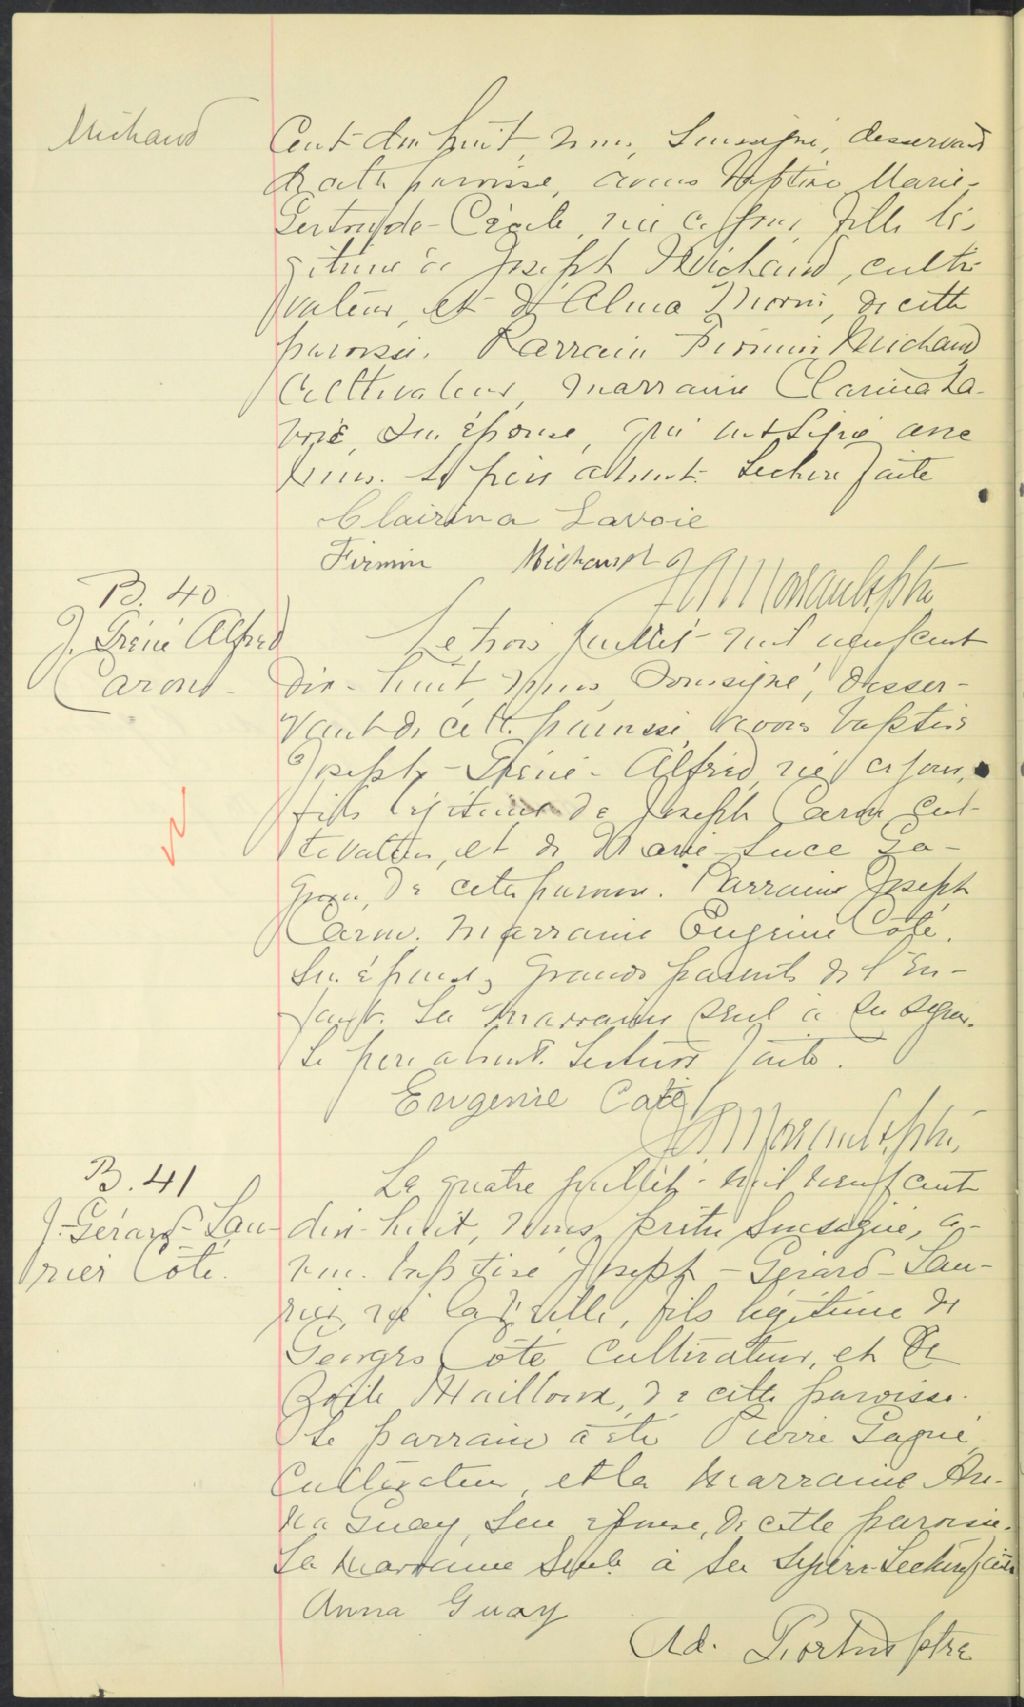 Michaud
Cent dix huit, nous, soussigné, desservant
de cette paroisse, avons baptisé Marie-
Gertrude-Cécile, née ce jour, fille lé-
gitime de Joseph Michaud, culti-
vateur, et d'Alma Morin, de cette
paroisse. Parrain Firmin Michaud
Cultivateur, marraine Clarina La-
voie, son épouse, qui ont signé avec
nous. Le père absent. Lecture faite
Clairina Lavoie
Firmin Michaud
ptre
B. 40
J. Iréné Alfred
Caron
Le trois juillet mil neuf cent
dix-huit, nous, soussigné, desser-
vant de cette paroisse, avons baptisé
Joseph-Iréné-Alfred, né ce jour,
fils légitime de Joseph Caron cul-
tivateur, et de Marie-Luce Ga-
gnon, de cette paroisse. Parrain Joseph
Caron. Marraine Eugénie Côté,
son épouse, grands parents de l'en-
fant. La marraine seul a su signer.
Le père absent. Lecture faite.
Eugenie Coté
ptre.
B. 41
J-Gérard-Lau-
rier Côté.
Le quatre juillet mil neuf cent
dix-huit, nous, prêtre soussigné, a-
vons baptisé Joseph-Gérard-Lau-
rier, né la veille, fils légitime de
Georges Côté cultivateur, et de
Mailloux, de cette paroisse.
Le parrain a été Pierre Gagné,
Cultivateur, et la marraine An-
na Guay, son épouse, de cette paroisse.
La marraine seule a su signer. Lecture faite
Anna Guay
Ad. ptre